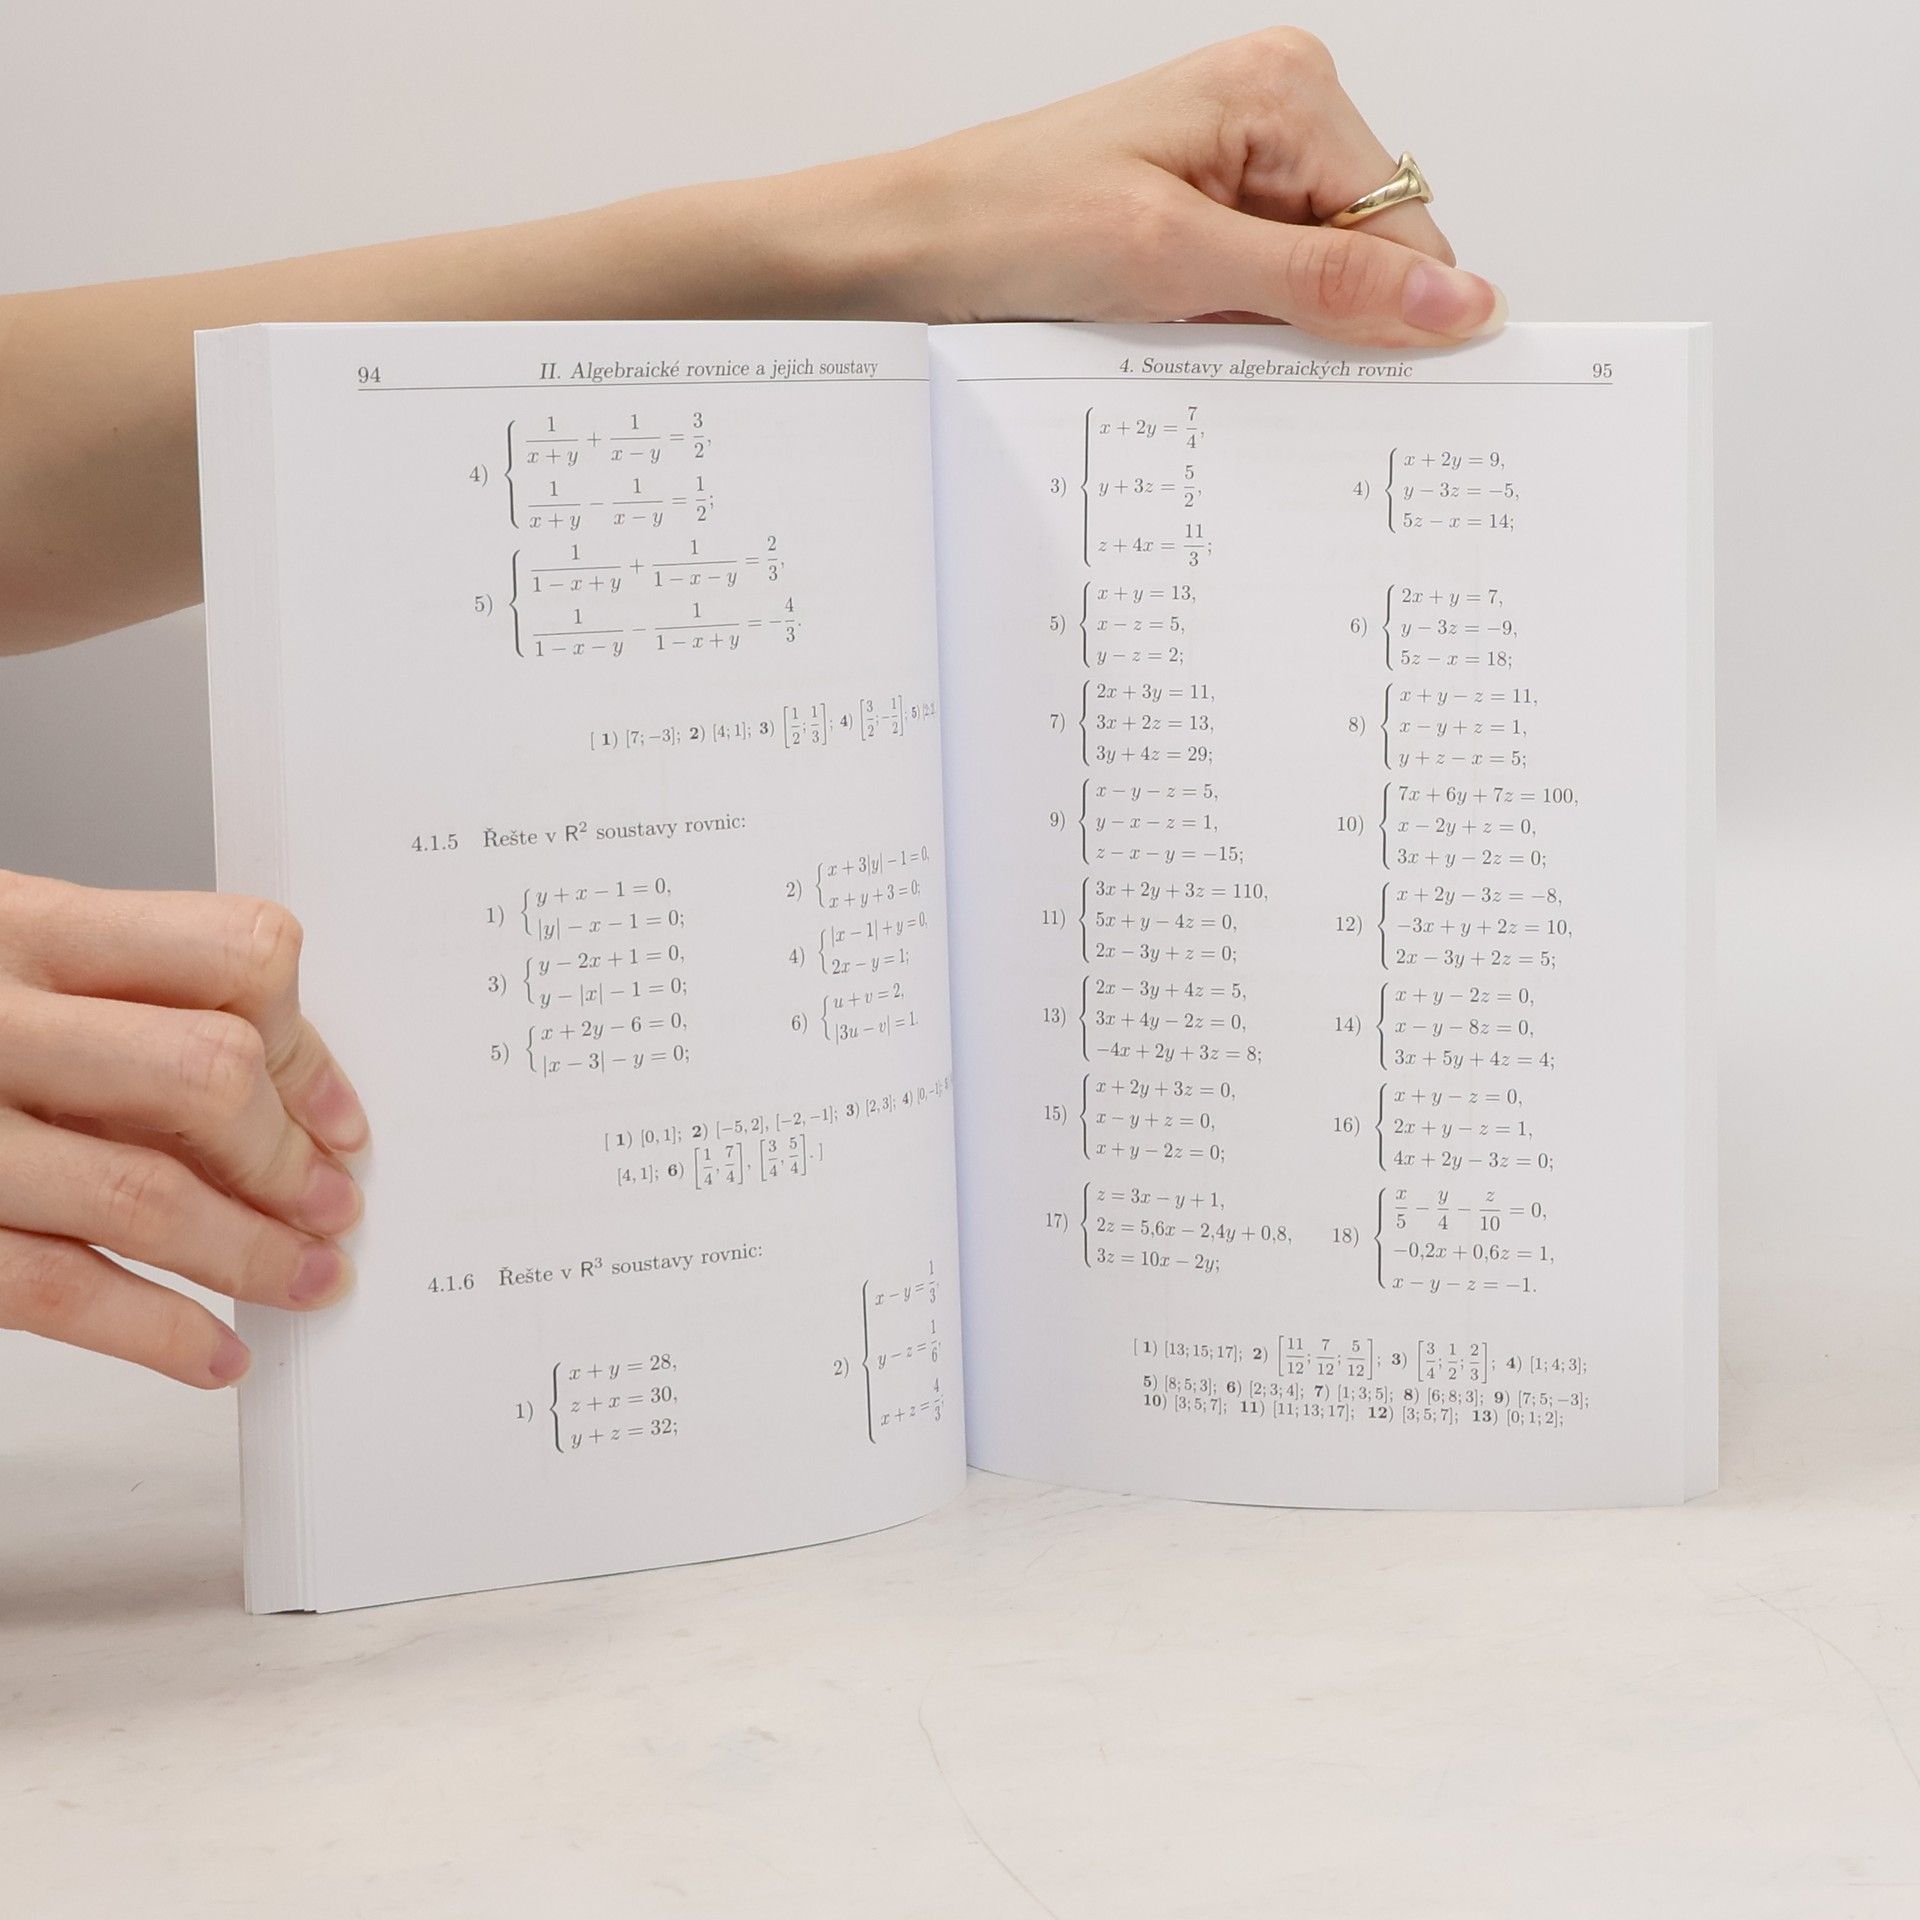 94 II. Algebraické rovnice a jejich soustavy
4) { 1/(x + y) + 1/(x − y) = 3/2,
1/(x + y) − 1/(x − y) = 1/2;
5) { 1/(1 − x + y) + 1/(1 − x − y) = 2/3,
1/(1 − x − y) − 1/(1 − x + y) = −4/3.
[ 1) [7; −3]; 2) [4; 1]; 3) [1/2; 1/3]; 4) [3/2; −1/2]; 5)
4.1.5 Řešte v R² soustavy rovnic:
1) { y + x − 1 = 0,
|y| − x − 1 = 0;
2) { x + 3|y| − 1 = 0,
x + y + 3 = 0;
3) { y − 2x + 1 = 0,
y − |x| − 1 = 0;
4) { |x − 1| + y = 0,
2x − y = 1;
5) { x + 2y − 6 = 0,
|x − 3| − y = 0;
6) { u + v = 2,
|3u − v| = 1.
[ 1) [0, 1]; 2) [−5, 2], [−2, −1]; 3) [2, 3]; 4) [0, −1];
[4, 1]; 6) [1/4, 7/4], [3/4, 5/4]. ]
4.1.6 Řešte v R³ soustavy rovnic:
1) { x + y = 28,
z + x = 30,
y + z = 32;
2) { x − y = 1/3,
y − z = 1/6,
x + z = 4/3;
4. Soustavy algebraických rovnic 95
3) { x + 2y = 7/4,
y + 3z = 5/2,
z + 4x = 11/3;
4) { x + 2y = 9,
y − 3z = −5,
5z − x = 14;
5) { x + y = 13,
x − z = 5,
y − z = 2;
6) { 2x + y = 7,
y − 3z = −9,
5z − x = 18;
7) { 2x + 3y = 11,
3x + 2z = 13,
3y + 4z = 29;
8) { x + y − z = 11,
x − y + z = 1,
y + z − x = 5;
9) { x − y − z = 5,
y − x − z = 1,
z − x − y = −15;
10) { 7x + 6y + 7z = 100,
x − 2y + z = 0,
3x + y − 2z = 0;
11) { 3x + 2y + 3z = 110,
5x + y − 4z = 0,
2x − 3y + z = 0;
12) { x + 2y − 3z = −8,
−3x + y + 2z = 10,
2x − 3y + 2z = 5;
13) { 2x − 3y + 4z = 5,
3x + 4y − 2z = 0,
−4x + 2y + 3z = 8;
14) { x + y − 2z = 0,
x − y − 8z = 0,
3x + 5y + 4z = 4;
15) { x + 2y + 3z = 0,
x − y + z = 0,
x + y − 2z = 0;
16) { x + y − z = 0,
2x + y − z = 1,
4x + 2y − 3z = 0;
17) { z = 3x − y + 1,
2z = 5,6x − 2,4y + 0,8,
3z = 10x − 2y;
18) { x/5 − y/4 − z/10 = 0,
−0,2x + 0,6z = 1,
x − y − z = −1.
[ 1) [13; 15; 17]; 2) [11/12; 7/12; 5/12]; 3) [3/4; 1/2; 2/3]; 4) [1; 4; 3];
5) [8; 5; 3]; 6) [2; 3; 4]; 7) [1; 3; 5]; 8) [6; 8; 3]; 9) [7; 5; −3];
10) [3; 5; 7]; 11) [11; 13; 17]; 12) [3; 5; 7]; 13) [0; 1; 2];